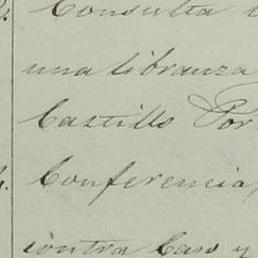 Consulta
una libranza
Castillo Por
Conferencia,
contra Caso y